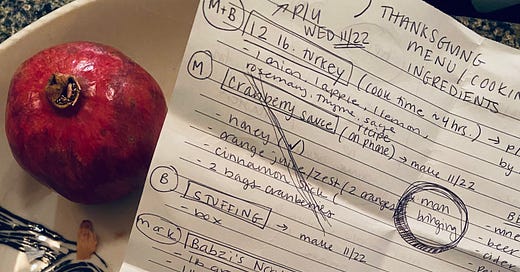 THANKSGIVING
MENU / COOKIN
INGREDIENTS
WED 11/22
M+B
12 lb. turkey (cook time ~4 hrs.) → p/
- 1 onion, 1 apple, 1 lemon, by
rosemary, thyme, sage
M
Cranberry sauce (recipe on phone) → make 11/22
- honey (✓)
- orange juice/zest (2 oranges
- cinnamon stick
- 2 bags cranberries
mom
bringing
B
STUFFING → make 11/22
- box
- beer
mark
Babzi's
- 1 lb